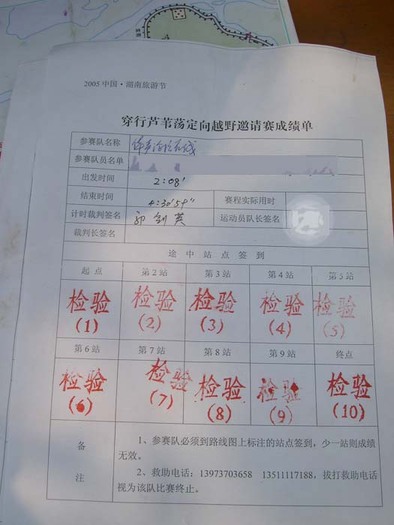 2005 中国·湖南旅游节
穿行芦苇荡定向越野邀请赛成绩单
参赛队名称
参赛队员名单
出发时间 2:08'
结束时间 4:30'59" 赛程实际用时
计时裁判签名 运动员队长签名
裁判长签名
途中站点签到
起点 第2站 第3站 第4站 第5站
检验 检验 检验 检验 检验
(1) (2) (3) (4) (5)
第6站 第7站 第8站 第9站 终点
检验 检验 检验 检验 检验
(6) (7) (8) (9) (10)
备注
1、参赛队必须到路线图上标注的站点签到，少一站则成绩
无效。
2、救助电话：13973703658 13511117188，拔打救助电话
视为该队比赛终止。